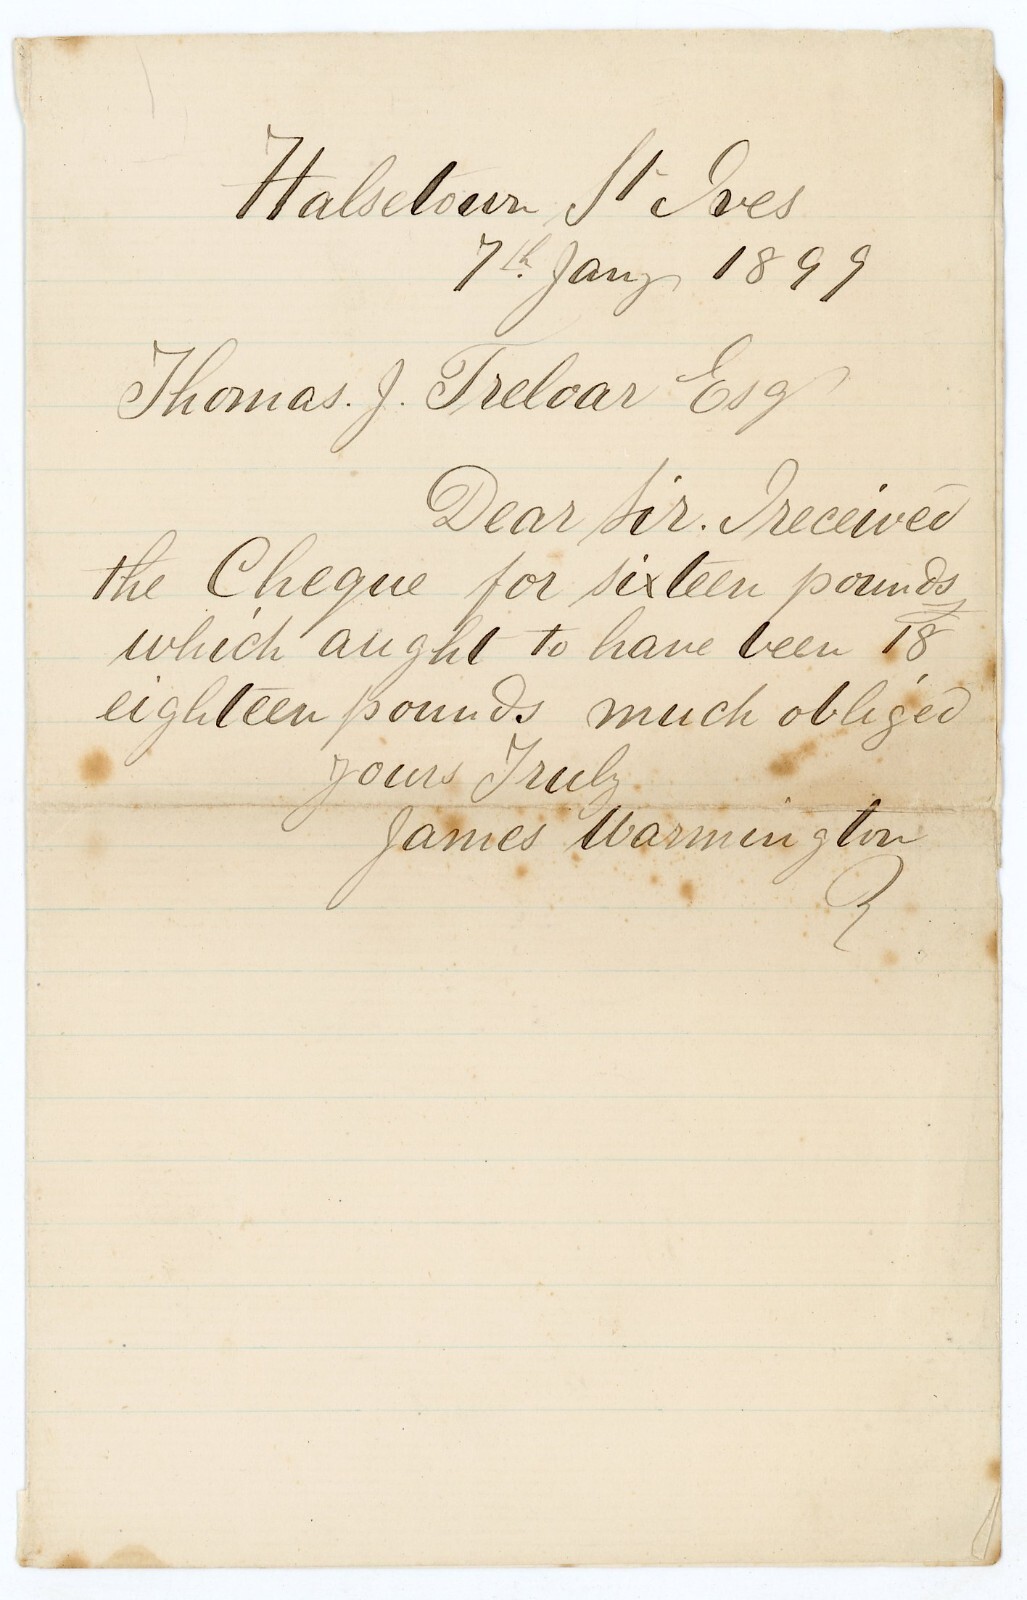 Halsetown St Ives
7th. Jany 1899
Thomas. J. Treloar Esq
Dear Sir. I received
the Cheque for sixteen pounds
which aught to have been 18
eighteen pounds much obliged
yours Truly
James Warmington